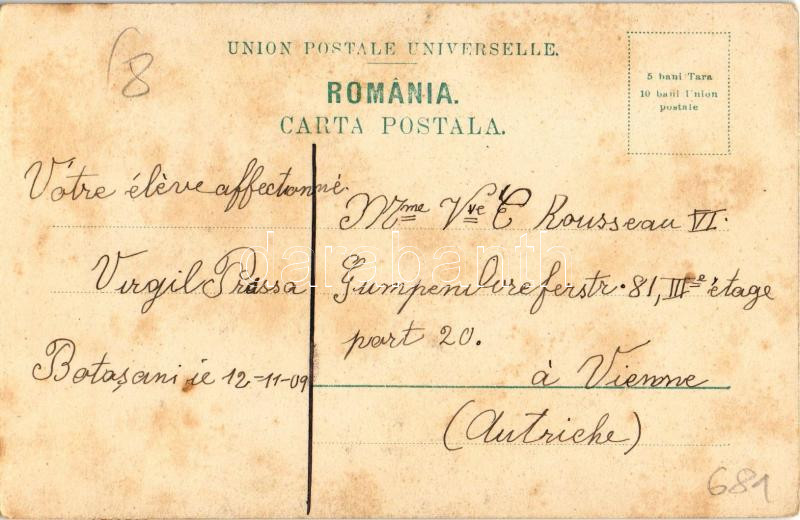 8
UNION POSTALE UNIVERSELLE.
ROMÂNIA.
CARTA POSTALA.
5 bani Tara
10 bani Union
postale
Vôtre élève affectionné.
Virgil Prassa
Botoşani ie 12-11-09
Mme Vve E Rousseau VI.
Gumpendoreferstr. 81, IIIe étage
part 20.
à Vienne
(Autriche)
darabanth
681